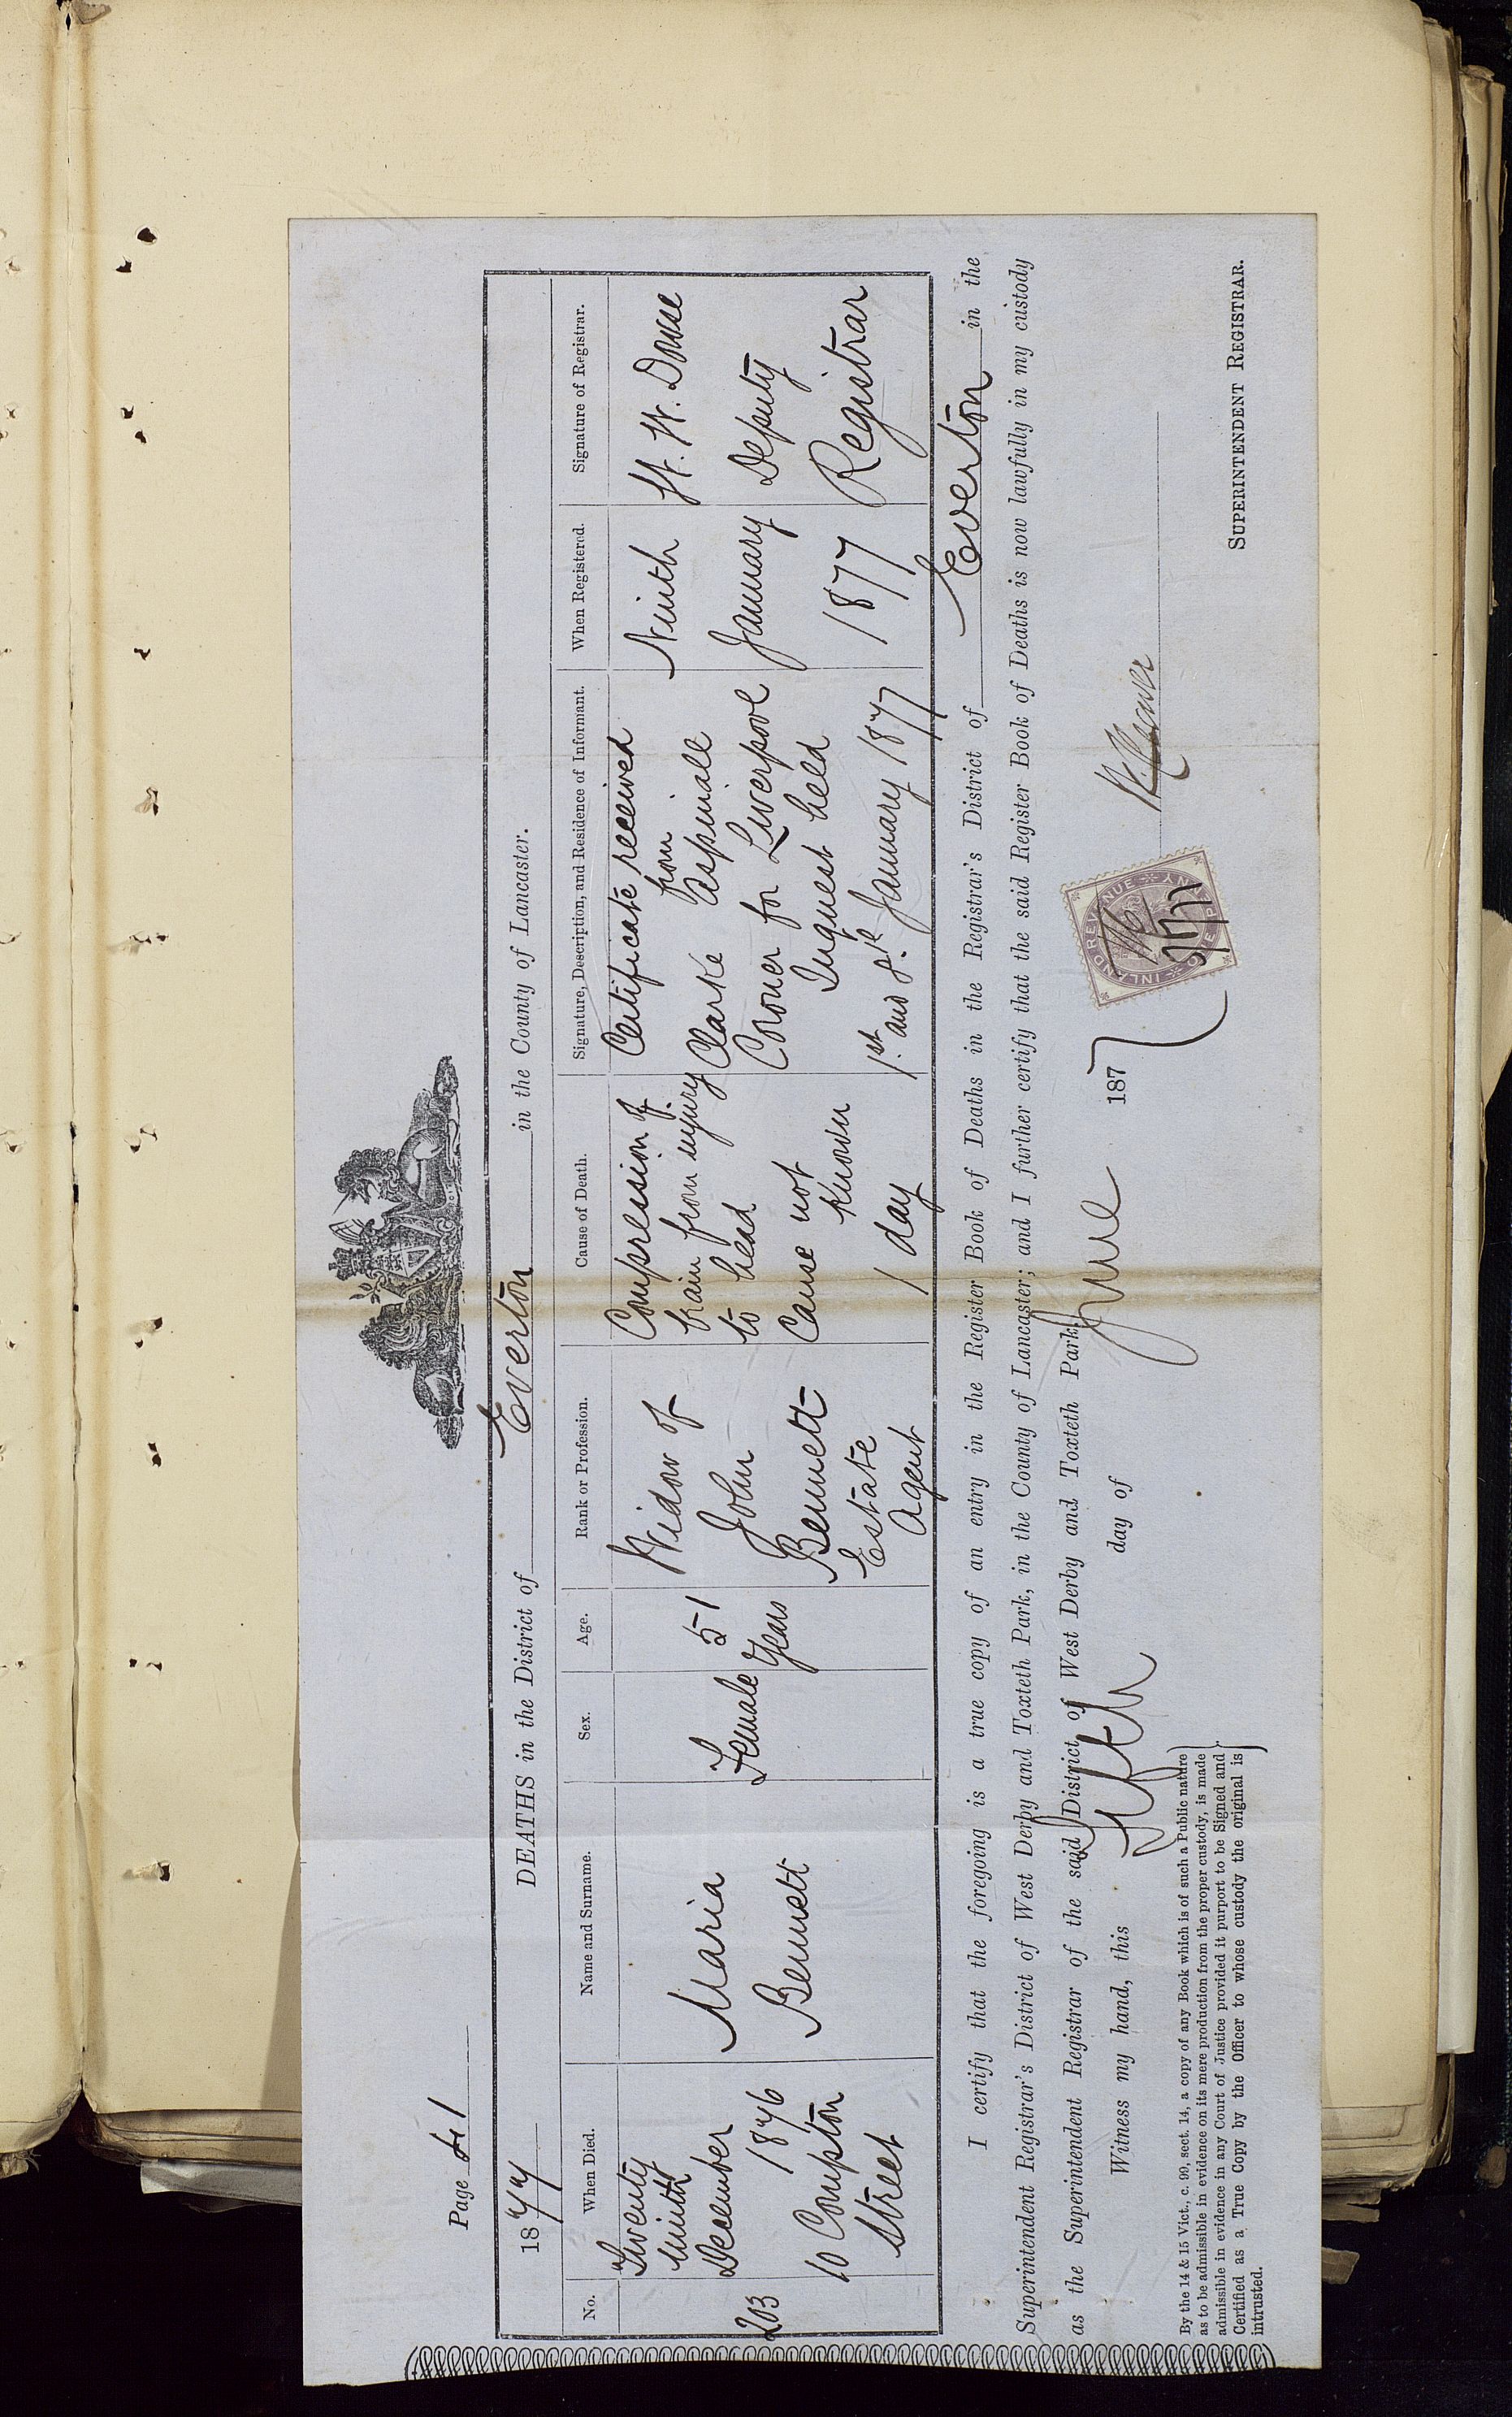 Page 41
1877 DEATHS in the District of Everton in the County of Lancaster.
No. When Died. Name and Surname. Sex. Age. Rank or Profession. Cause of Death. Signature, Description, and Residence of Informant. When Registered. Signature of Registrar.
203
Twenty
ninth
December
1876
10 Compton
Street
Maria
Bennett
Female
51
Years
Widow of
John
Bennett
Estate
Agent
Compression of
brain from injury
to head
Cause not
known
1 day
Certificate received
from
Clarke Aspinall
Coroner for Liverpool
Inquest held
1st. and 8th January 1877
Ninth
January
1877
H. W. Dowse
Deputy
Registrar
I certify that the foregoing is a true copy of an entry in the Register Book of Deaths in the Registrar's District of Everton in the
Superintendent Registrar's District of West Derby and Toxteth Park, in the County of Lancaster; and I further certify that the said Register Book of Deaths is now lawfully in my custody
as the Superintendent Registrar of the said District of West Derby and Toxteth Park.
Witness my hand, this fifth day of June 1877
INLAND REVENUE
ONE PENNY
SUPERINTENDENT REGISTRAR.
By the 14 & 15 Vict., c. 99, sect. 14, a copy of any Book which is of such a Public nature
as to be admissible in evidence on its mere production from the proper custody, is made
admissible in evidence in any Court of Justice provided it purport to be Signed and
Certified as a True Copy by the Officer to whose custody the original is
intrusted.